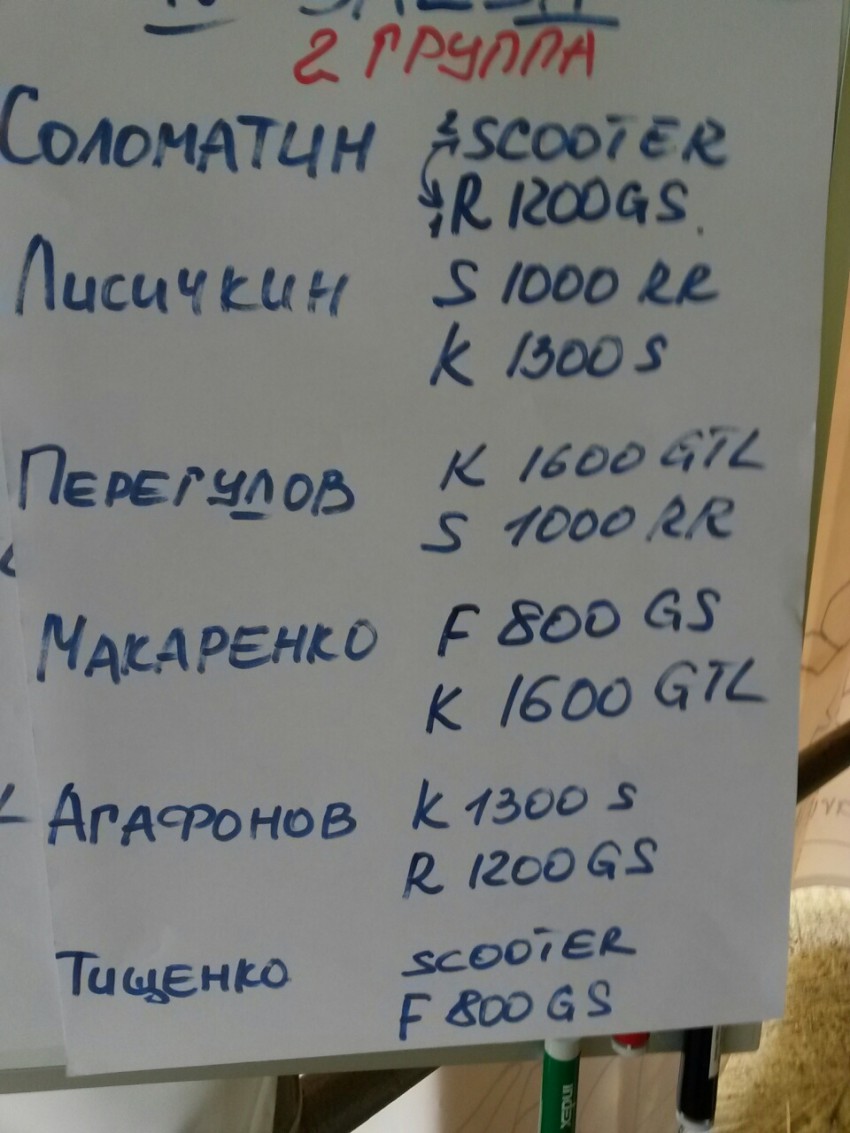 2 ГРУППА
СОЛОМАТИН 2 SCOOTER
1 R 1200 GS.
ЛИСИЧКИН S 1000 RR
K 1300 S
ПЕРЕГУЛОВ K 1600 GTL
S 1000 RR
МАКАРЕНКО F 800 GS
K 1600 GTL
АГАФОНОВ K 1300 S
R 1200 GS
ТИЩЕНКО SCOOTER
F 800 GS
INDEX